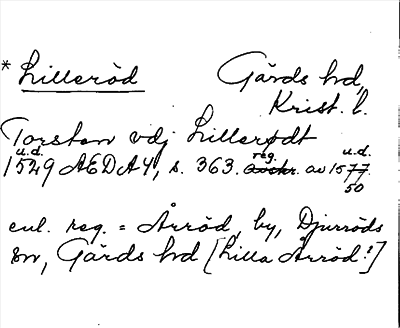 * Lilleröd Gärds hd,
Krist. l.
Torsten vdj Lillerødt
u.d. reg. u.d.
1529 AEDA 4, s. 363. avskr. av 1577
50
enl. reg. = Årröd, by, Djurröds
sn, Gärds hd [Lilla Årröd?]